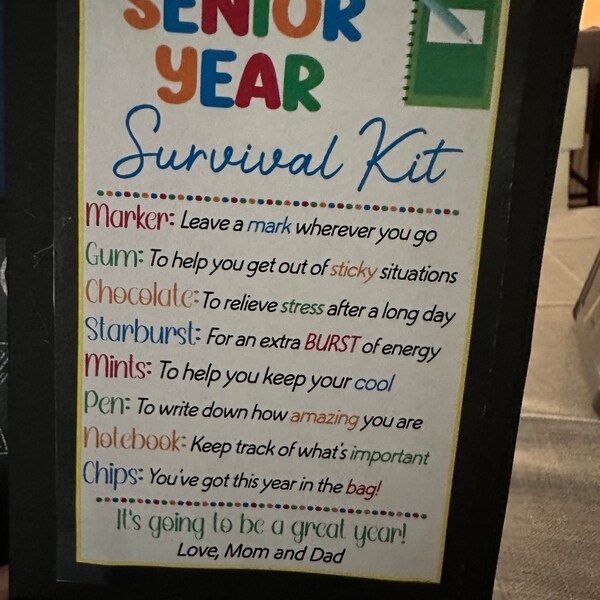 SENIOR
YEAR
Survival Kit
Marker: Leave a mark wherever you go
Gum: To help you get out of sticky situations
Chocolate: To relieve stress after a long day
Starburst: For an extra BURST of energy
Mints: To help you keep your cool
Pen: To write down how amazing you are
Notebook: Keep track of what's important
Chips: You've got this year in the bag!
It's going to be a great year!
Love, Mom and Dad